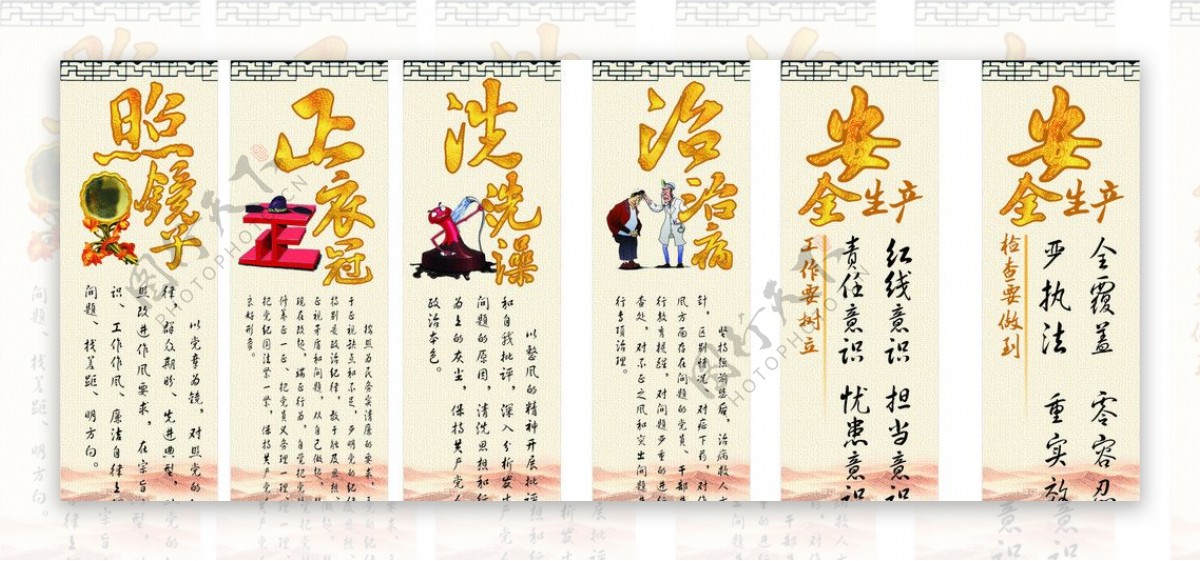 照镜子
以党章为镜，对照党的
律，群众期盼、先进典型，
照改进作风要求，在宗旨
识、工作作风、廉洁自律
问题、找差距、明方向。
正衣冠
按照为民务实清廉的要求，
于正视缺点和不足，严明党的纪
持别是政治纪律，敢于触及思想、
正视矛盾和问题，从自己做起，
现在改起，端正行为，自觉把党
行养正一正、把党员义务理一理
把党纪国法紧一紧，保持共产党
良好形象。
洗洗澡
以整风的精神开展批评
和自我批评，深入分析发生
问题的原因，清洗思想和行
为上的灰尘，保持共产党人
政治本色。
治治病
坚持惩前毖后，治病救人方
针，区别情况、对症下药，对作
风方面存在问题的党员、干部进
行教育提醒，对问题严重的进行
查处，对不正之风和突出问题
行专项治理。
安
全生产
工作要树立
红线意识 担当意识
责任意识 忧患意识
安
全生产
检查要做到
全覆盖 零容忍
严执法 重实效
图行天下
PHOTOPHOTO.CN